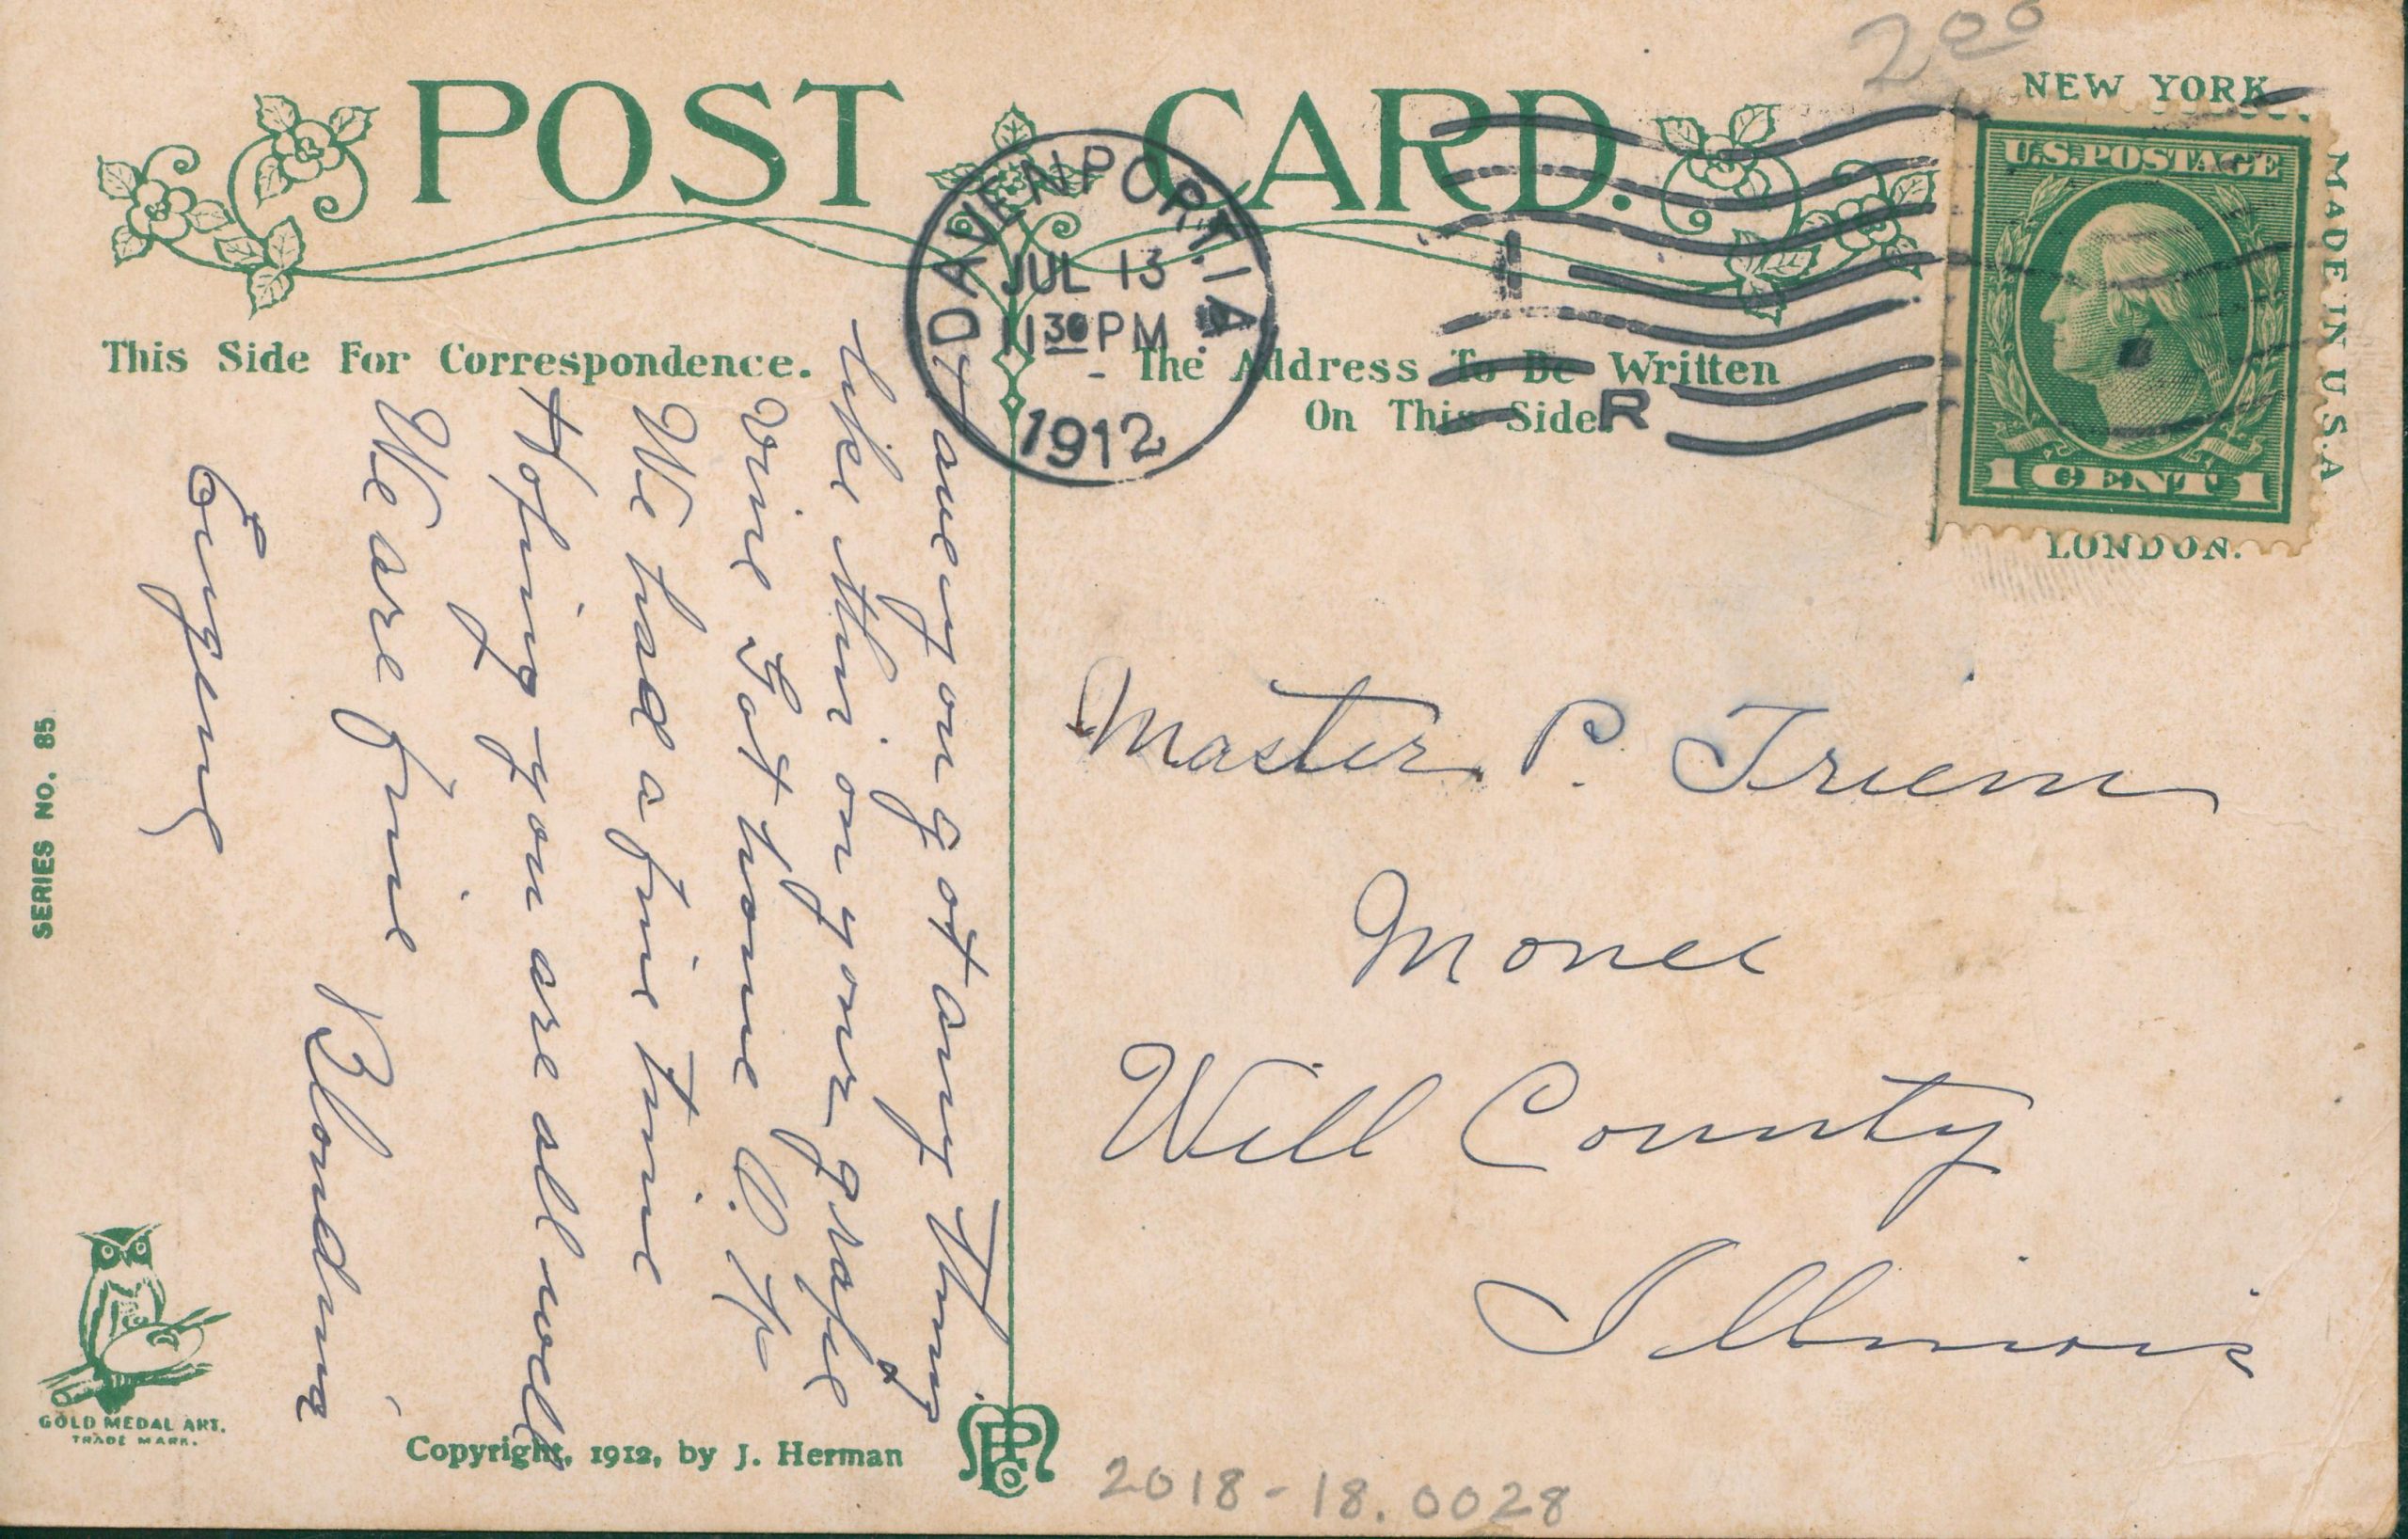 2 00
POST CARD.
NEW YORK
U.S.POSTAGE
1 CENT 1
LONDON.
MADE IN U.S.A
DAVENPORT. IA
JUL 13
11 30 PM
1912
R
This Side For Correspondence.
The Address To Be Written
On This Side.
Have you got any thing
like this on your grape
vine Got home O. K
We had a fine time
Hoping you are all well
We are fine Blondina
Eugene
Master P. Triem
Monee
Will County
Illinois
SERIES NO. 85
GOLD MEDAL ART.
TRADE MARK.
Copyright, 1912, by J. Herman
2018-18.0028